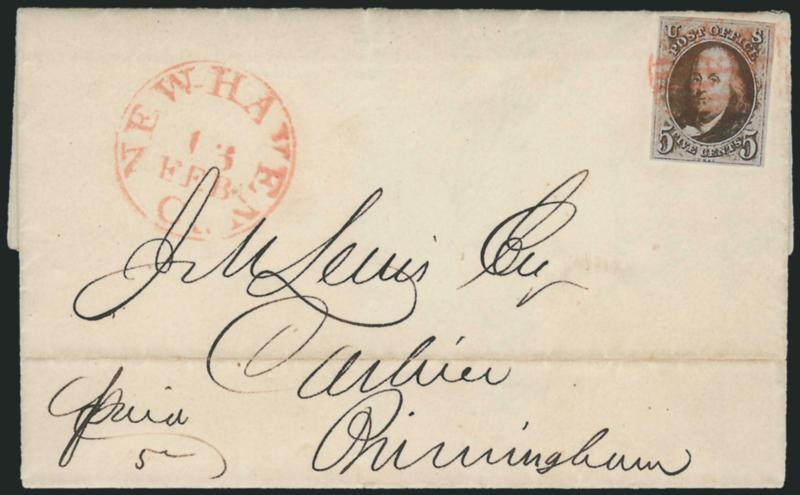 U S
POST OFFICE
5 FIVE CENTS 5
NEW-HAVEN
13
FEB
Ct.
J M Lewis Esq
Cashier
Birmingham
paid
5